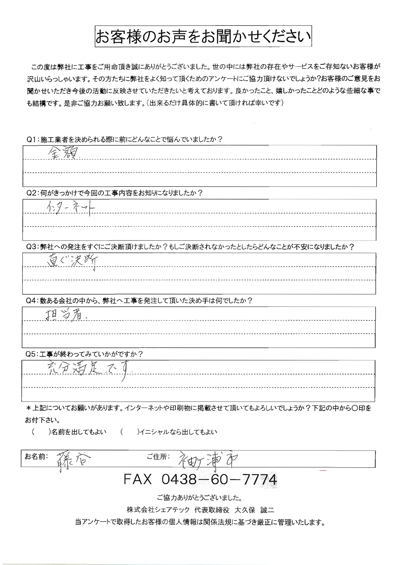 お客様のお声をお聞かせください
この度は弊社に工事をご用命頂き誠にありがとうございました。世の中には弊社の存在やサービスをご存知ないお客様が
沢山いらっしゃいます。その方たちに弊社をよく知って頂くためのアンケートにご協力頂けないでしょうか?お客様のご意見をお
聞かせいただき今後の活動に反映させていただきたいと考えております。良かったこと、嬉しかったことどのような些細な事で
も結構です。是非ご協力お願い致します。(出来るだけ具体的に書いて頂ければ幸いです)
Q1:施工業者を決められる際に前にどんなことで悩んでいましたか?
金額
Q2:何がきっかけで今回の工事内容をお知りになりましたか?
インターネット
Q3:弊社への発注をすぐにご決断頂けましたか?もしご決断されなかったとしたらどんなことが不安になりましたか?
直ぐ決断
Q4:数ある会社の中から、弊社へ工事を発注して頂いた決め手は何でしたか?
担当者.
Q5:工事が終わってみていかがですか?
充分満足です
*上記についてお願いがあります。インターネットや印刷物に掲載させて頂いてもよろしいでしょうか?下記の中から〇印を
お付下さい。
( )名前を出してもよい ( )イニシャルなら出してもよい
お名前: 藤谷 ご住所: 袖ケ浦市
FAX 0438-60-7774
ご協力ありがとうございました。
株式会社シェアテック 代表取締役 大久保 誠二
当アンケートで取得したお客様の個人情報は関係法規に基づき厳正に管理いたします。